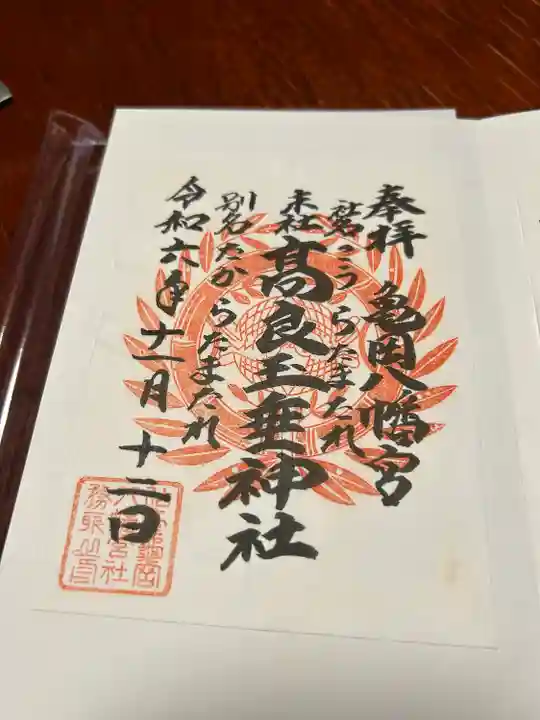 奉拝　亀岡八幡宮
社名こうらたまたれ
末社
高良玉垂神社
別名たからたまたれ
令和六年十一月十二日